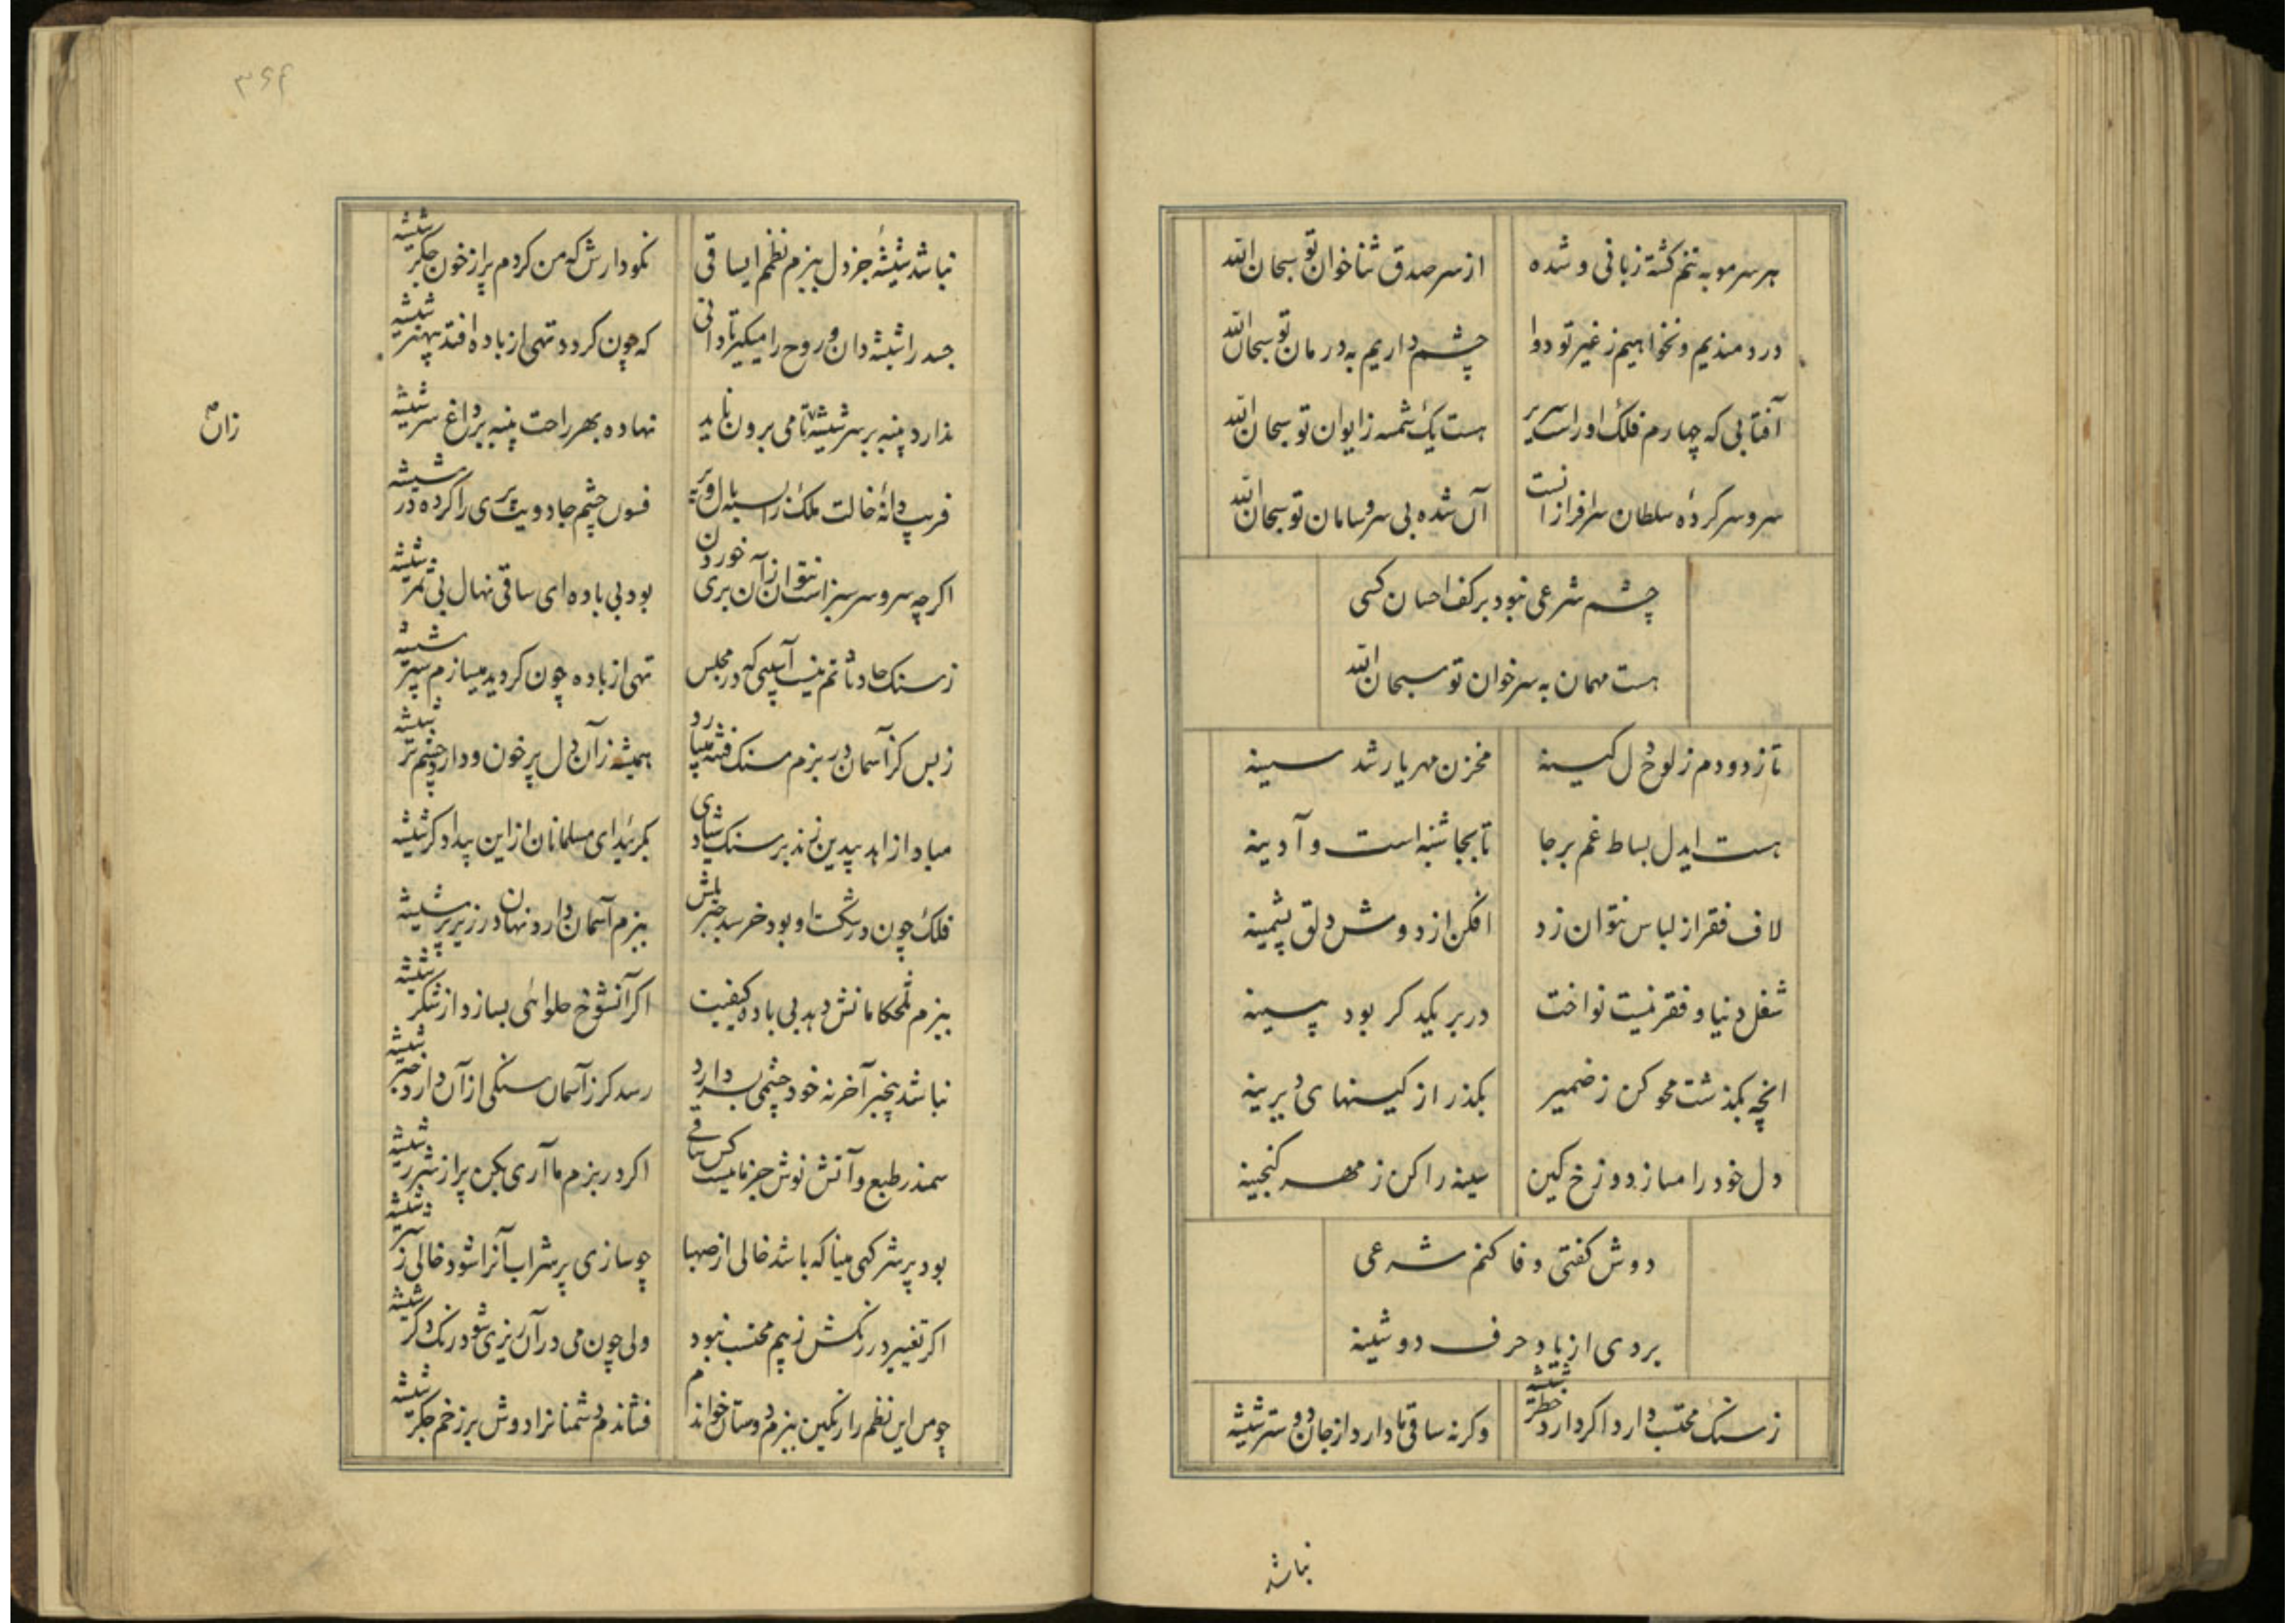 هر سر مو به تنم کشته زبانی و شده
از سر صدق ثناخوان تو سبحان الله
دردمندیم و نخواهیم ز غیر تو دوا
چشم داریم به درمان تو سبحان الله
آفتابی که چهارم فلک او را سریر
هست یک شمسه ز ایوان تو سبحان الله
سر و سر کردهٔ سلطان سرافرازانست
آن شده بی سر و سامان تو سبحان الله
چشم شرعی نبود بر کف احسان کسی
هست مهمان به سر خوان تو سبحان الله
تا زدودم ز لوح دل کینه
مخزن مهر یار شد سینه
هست ایدل بساط غم بر جا
تا بجا شنبه است و آدینه
لاف فقر از لباس نتوان زد
افکن از دوش دلق پشمینه
شغل دنیا و فقر نیست نواخت
در بر یکدکر بود پسینه
انچه بکذشت محو کن ز ضمیر
بکذر از کینهای دیرینه
دل خود را مساز دوزخ کین
سینه را کن ز مهر کنجینه
دوش کفتی وفا کنم شرعی
بردی از یاد حرف دوشینه
ز سنک محتسب دارد اکر دارد خطر شیشه
وکرنه ساقی ما دارد از جان دوستر شیشه
نباشد
۳۶۴
نباشد شیشهٔ جز دل ببزم نظم ایساقی
نکودارش که من کردم پر از خون جکر شیشه
جسد را شیشه دان و روح را میکیر تا دانی
که چون کردد تهی از باده افتد پهنر شیشه
ندارد پنبه بر سر شیشه تا می برون ناید
نهاده بهر راحت پنبه بر داغ سر شیشه
زان
فریب دانهٔ خالت ملک را بسته بال و پر
فسون چشم جادویت پری را کرده در شیشه
اکرچه سرو سرسبز است نتوان زآن بری خوردن
بود بی باده ای ساقی نهال بی ثمر شیشه
ز سنک حادثاتم نیست آسیبی که در مجلس
تهی از باده چون کردید میسازم سپر شیشه
ز بس کز آسمان در بزم سنک فتنه میبارد
همیشه زآن دل پر خون و دارد چشم تر شیشه
مباد از زاهد بیدین زند بر سنک شادی
بکریید ای مسلمانان از این بیدادکر شیشه
فلک چون در شکست او بود خرسند
ببزم آسمان دارد نهان در زیر پر شیشه
ببزم تلخکامانش دهد بی باده کیفیت
اکر آنشوخ حلوائی بسازد از شکر شیشه
نباشد بیخبر آخر نه خود چشمی بسر دارد
رسد کر ز آسمان سنکی از آن دارد خبر شیشه
سمندر طبع و آتش نوش جز ما نیست کس ساقی
اکر در بزم ما آری بکن پر از شرر شیشه
بود پر شر کهی مینا که باشد خالی از صهبا
چو سازی پر شراب آنرا شود خالی ز شر شیشه
اکر تغییر در رنکش ز بیم محتسب نبود
ولی چون می در آن ریزی شود رنک دکر شیشه
چو من این نظم را رنکین ببزم دوستان خواندم
فشاندم دشمنانرا دوش بر زخم جکر شیشه